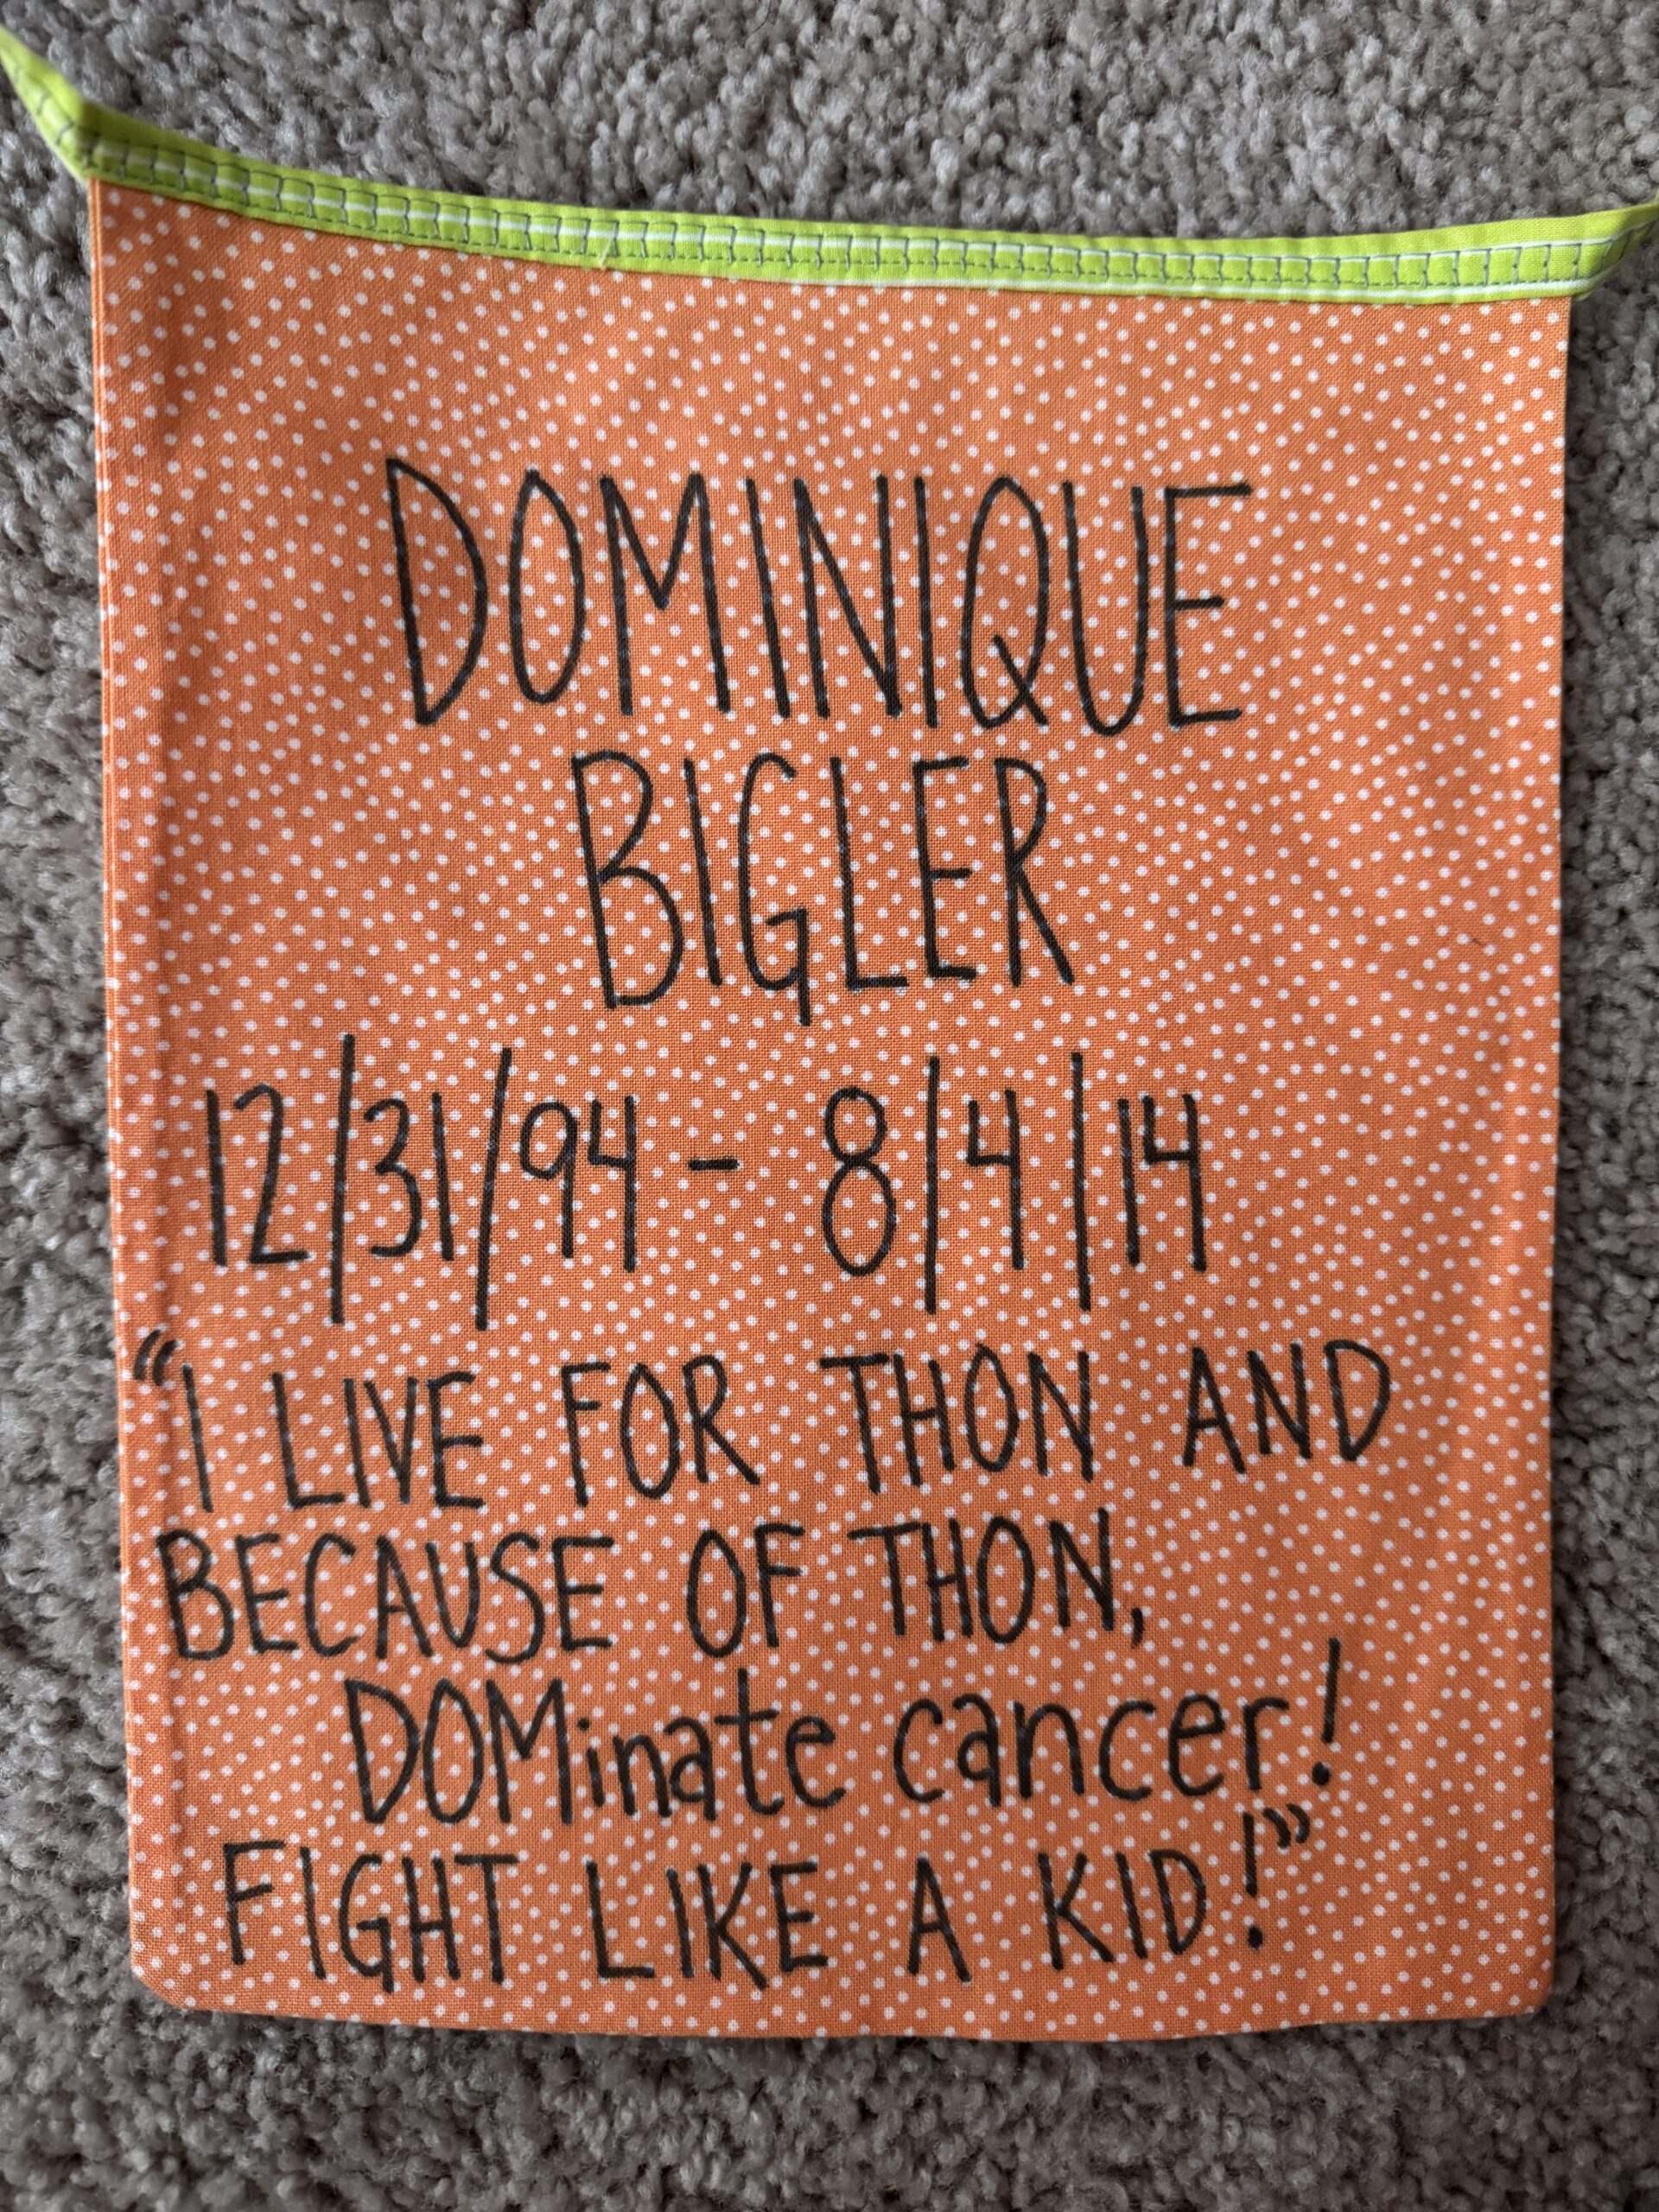 DOMINIQUE
BIGLER
12/31/94 - 8/4/14
“I LIVE FOR THON AND
BECAUSE OF THON,
DOMinate cancer!
FIGHT LIKE A KID!”